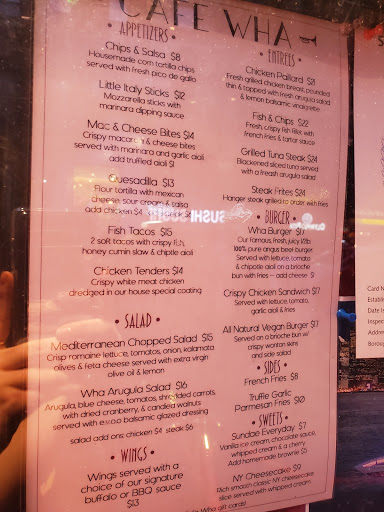 CAFE WHA
• APPETIZERS •
Chips & Salsa $8
Housemade corn tortilla chips
served with fresh pico de gallo
Little Italy Sticks $12
Mozzarella sticks with
marinara dipping sauce
Mac & Cheese Bites $14
Crispy macaroni & cheese bites
served with marinara and garlic aioli
add truffled aioli $1
Quesadilla $13
Flour tortilla with mexican
cheese, sour cream & salsa
add chicken $4
Fish Tacos $15
2 soft tacos with crispy fish,
honey cumin slaw & chipotle aioli
Chicken Tenders $14
Crispy white meat chicken
dredged in our house special coating
• SALAD •
Mediterranean Chopped Salad $15
Crisp romaine lettuce, tomatoes, onion, kalamata
olives & feta cheese served with extra virgin
olive oil & lemon
Wha Arugula Salad $16
Arugula, blue cheese, tomatoes, shredded carrots,
with dried cranberry, & candied walnuts
served with e.v.o.o balsamic glazed dressing
salad add ons: chicken $4 steak $6
• WINGS •
Wings served with a
choice of our signature
buffalo or BBQ sauce
$13
• ENTREES •
Chicken Paillard $21
Fresh grilled chicken breast, pounded
thin & topped with fresh arugula salad
& lemon balsamic vinaigrette
Fish & Chips $22
Fresh, crispy fish fillet, with
french fries & tartar sauce
Grilled Tuna Steak $24
Blackened sliced tuna served
with a freash arugula salad
Steak Frites $24
Hanger steak grilled to order with fries
• BURGER •
Wha Burger $17
Our famous, fresh, juicy 1/2lb
100% pure angus beef burger
Served with lettuce, tomato
& chipotle aioli on a brioche
bun with fries — add cheese $1
Crispy Chicken Sandwich $17
Served with lettuce, tomato,
garlic aioli & fries
All Natural Vegan Burger $17
Served on a brioche bun w/
crispy wonton skins
and side salad
• SIDES •
French Fries $8
Truffle Garlic
Parmesan Fries $10
• SWEETS •
Sundae Everyday $7
Vanilla ice cream, chocolate sauce,
whipped cream & a cherry
Add homemade brownie $5
NY Cheesecake $9
Rich smooth classic NY cheesecake
slice served with whipped cream
Wha gift cards!
SUSHI
Card N
Establis
Date Is
Inspec
Addre
Borou